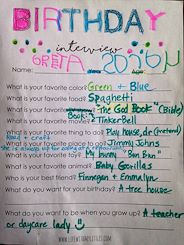 BIRTHDAY
interview
Name: GRETA
What is your favorite color? Green + Blue
What is your favorite food? Spaghetti
What is your favorite book? The God Book" (Bible)
What is your favorite movie? TinkerBell
Read + craft
What is your favorite thing to do? Play house, dr. (pretend)
What is your favorite place to go? Jimmy Johns
What is your favorite toy? My bunny "Bun Bun"
What is your favorite animal? Baby Gorillas
Who is your best friend? Finnegan + Emmalyn
What do you want for your birthday? A tree house
What do you want to be when you grow up? A teacher
or daycare lady